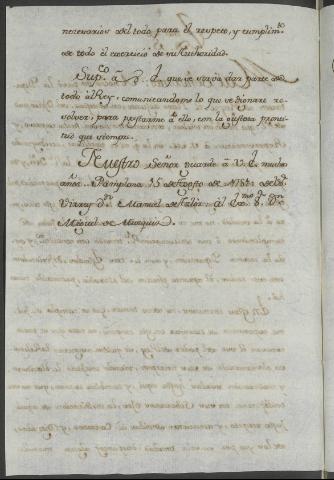 necesarios del todo para el respeto, y cumplim.to
de todo el exercicio de mi Autoridad.
Sup.co à V. E. que se sirva dar parte de
todo al Rey, comunicandome lo que se dignare re-
solver, para prestarme à ello, con la gustosa pron-
titud que siempre.
Nuestro Señor guarde à V. E. muchos
años. Pamplona 15 de Agosto de 1781. = El
Virrey D.n Manuel de Azlor = al Ex.mo S.r D.n
Miguel de Muzquiz.